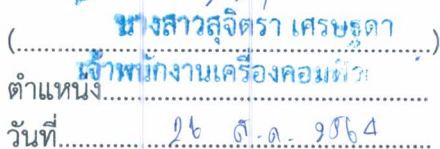 (นางสาวสุจิตรา เศรษฐดา)
ตำแหน่ง เจ้าพนักงานเครื่องคอมพิวเตอร์
วันที่ 26 ต.ค. 2564